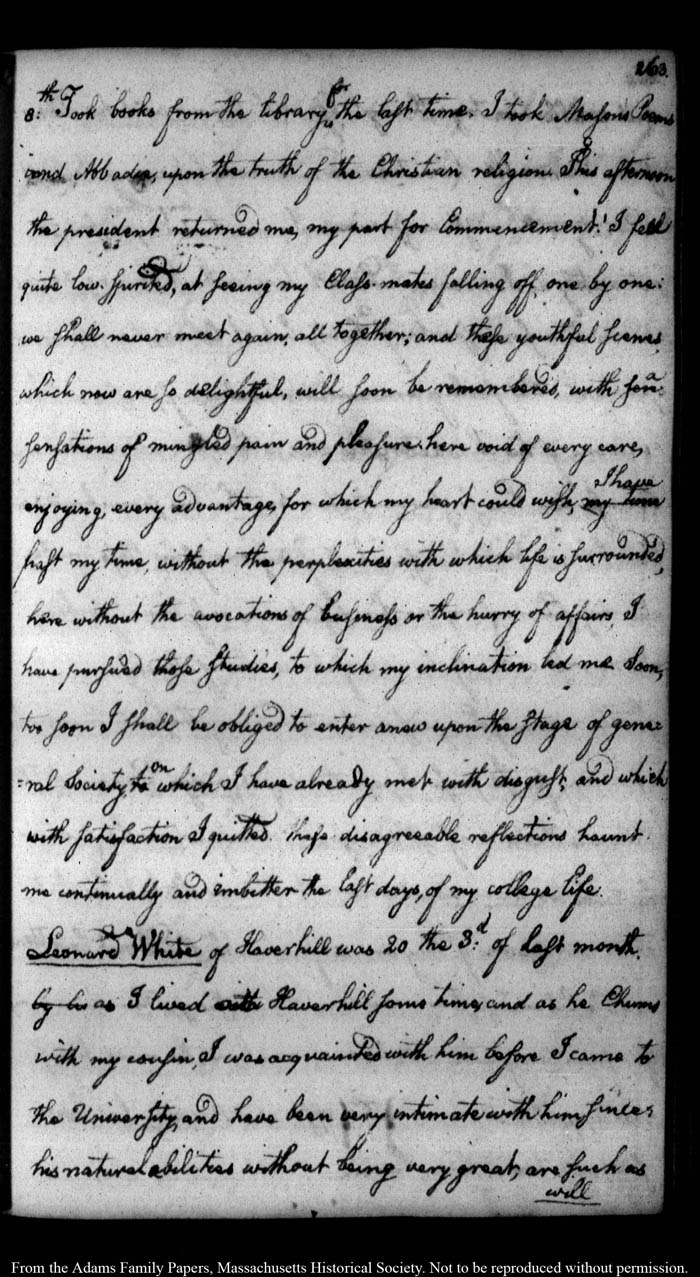 263.
8:th Took books from the library, for the last time. I took Masons Poems
and Abbadie, upon the truth of the Christian religion. This afternoon
the president returned me, my part for Commencement. I feel
quite low-spirited, at seeing my Class-mates falling off, one by one:
we shall never meet again, all together; and these youthful scenes,
which now are so delightful, will soon be remembered, with sen-
sensations of mingled pain and pleasure. here void of every care,
enjoying, every advantage, for which my heart could wish, my time I have
past my time, without the perplexities with which life is surrounded,
here without the avocations of business or the hurry of affairs, I
have pursued those studies, to which my inclination led me. Soon,
too soon I shall be obliged to enter anew upon the stage of gene-
=ral Society, to on which I have already met with disgust, and which
with satisfaction I quitted. these disagreeable reflections haunt
me continually and imbitter the last days, of my college life.
Leonard White of Haverhill was 20 the 3:d of last month.
by his as I lived at Haverhill some time, and as he Chums
with my cousin, I was acquainted with him before I came to
the University, and have been very intimate with him, since:
his natural abilities without being very great, are such as
will
From the Adams Family Papers, Massachusetts Historical Society. Not to be reproduced without permission.